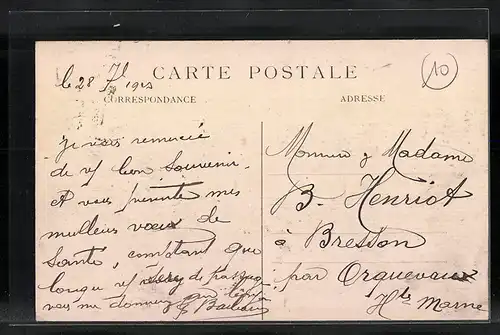 le 28
CARTE POSTALE
10
CORRESPONDANCE
ADRESSE
Je vous remercie
de v/ bon Souvenir
et vous présente mes
meilleurs vœux de
Santé, comptant que
vous me donnerez
Monsieur & Madame
B- Henriot
à Bresson
par Orquevaux
Hte Marne